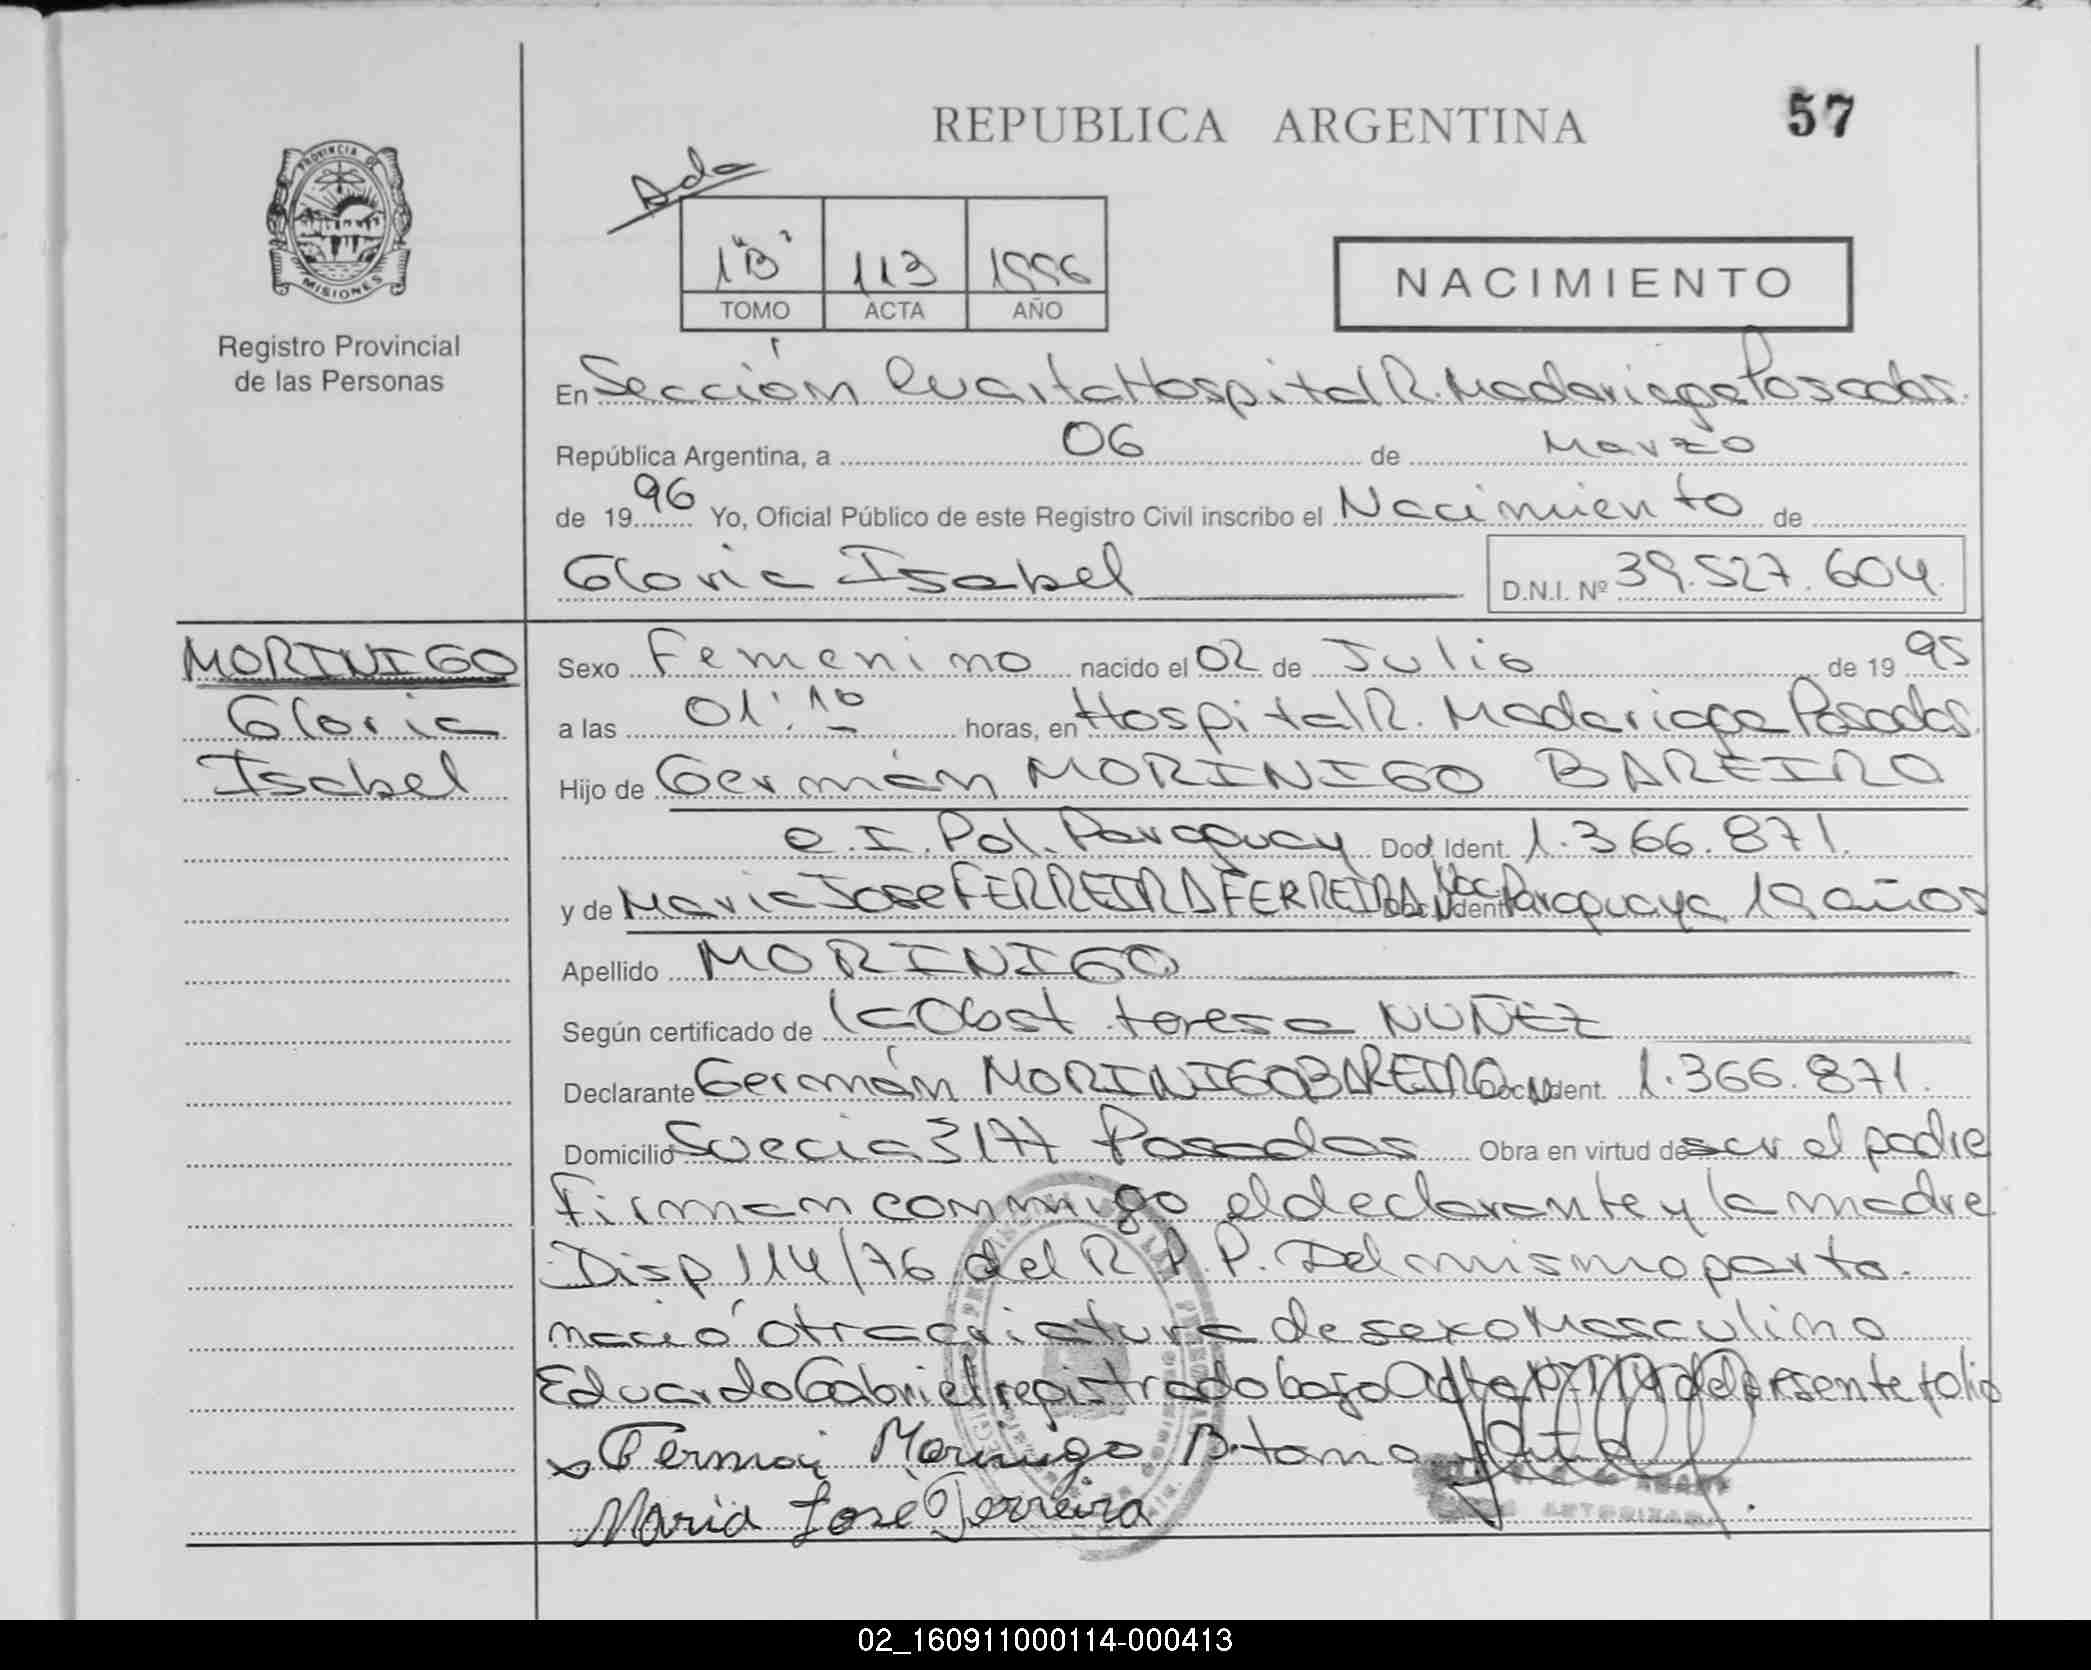 57
REPUBLICA ARGENTINA
PROVINCIA DE
MISIONES
Registro Provincial
de las Personas
Ada
1 "B" 113 1996
TOMO ACTA AÑO
NACIMIENTO
En Sección Cuarta Hospital R. Madariaga Posadas.
República Argentina, a 06 de Marzo
de 19 96 Yo, Oficial Público de este Registro Civil inscribo el Nacimiento de
Gloria Isabel D.N.I. Nº 39.527.604.
MORINIGO
Gloria
Isabel
Sexo Femenino nacido el 02 de Julio de 19 95
a las 01:10 horas, en Hospital R. Madariaga Posadas.
Hijo de Germán MORINIGO BAREIRO
e.I. Pol. Paraguay Doc. Ident. 1.366.871.
y de Maria Jose FERREIRA FERREIRA Doc. Ident. Nac. Paraguaya 19 años
Apellido MORINIGO
Según certificado de la Obst. teresa NUÑEZ
Declarante Germán MORINIGO BAREIRO Doc. Ident. 1.366.871.
Domicilio Suecia 3177 Posadas Obra en virtud de ser el padre
Firman conmigo el declarante y la madre
Disp. 114/76 del R.P.P. Del mismo parto.
nació otra criatura de sexo Masculino
Eduardo Gabriel registrado bajo Acta Nº 114 del presente folio
Morinigo B. tomo
Maria José Ferreira
02_160911000114-000413